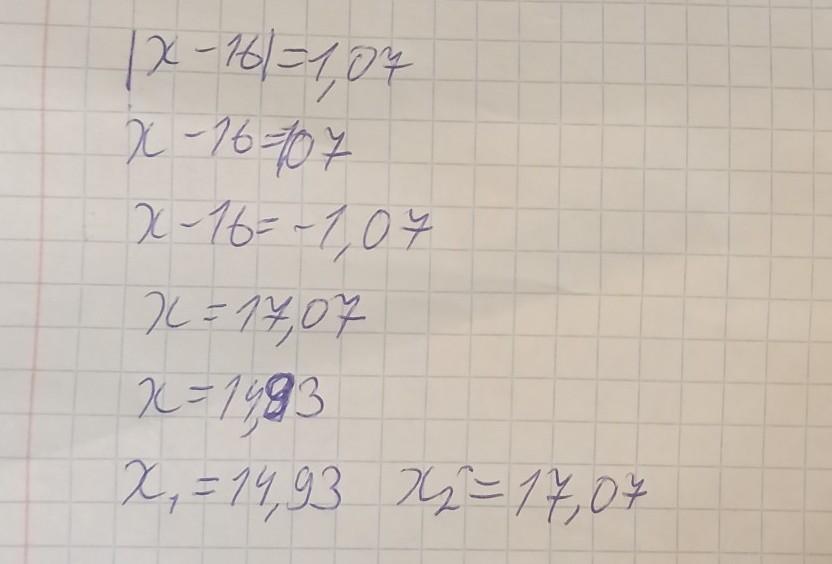 |x - 16| = 1,07
x - 16 = 107
x - 16 = -1,07
x = 17,07
x = 14,93
x₁ = 14,93 x₂ = 17,07